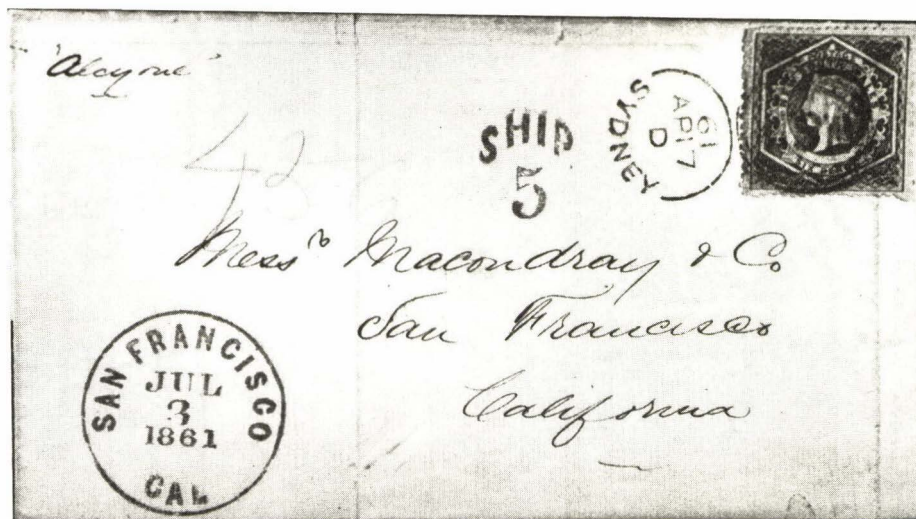 'Alcyone'
42
SHIP
5
SYDNEY
D
AP 17
61
Mess.rs Macondray & Co
San Francisco
California
SAN FRANCISCO
JUL
3
1861
CAL